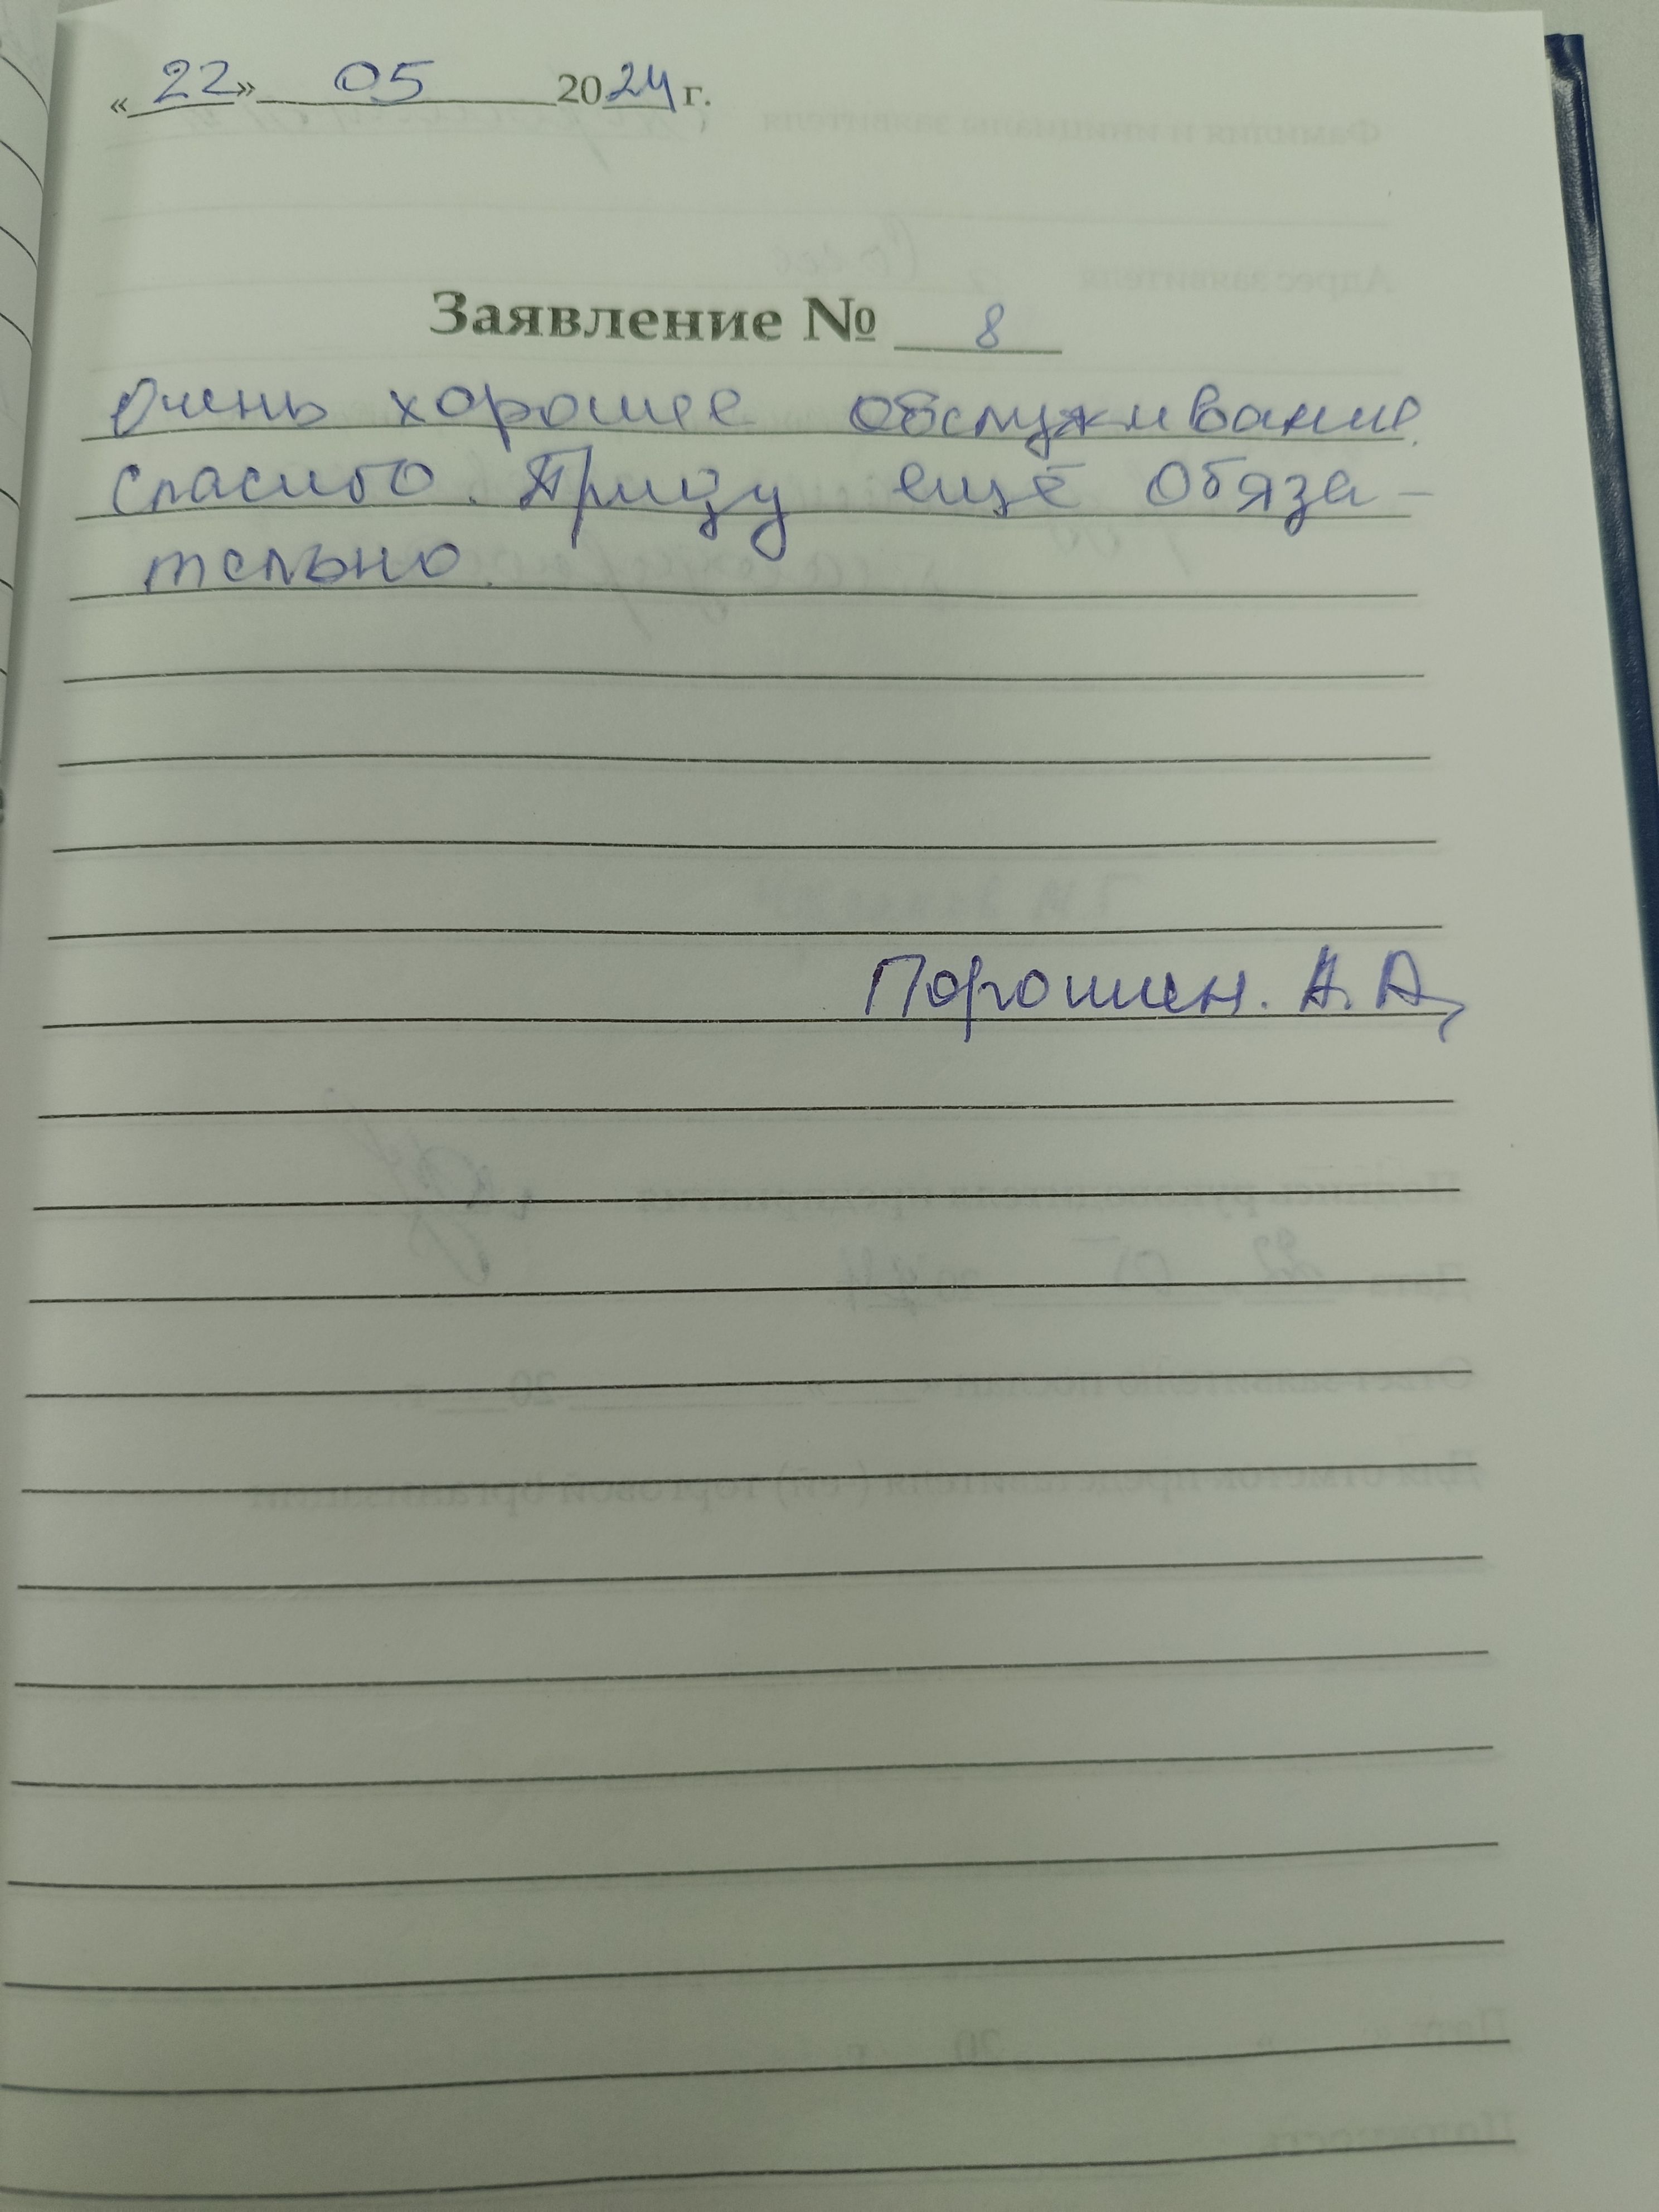 «22» 05 2024 г.
Заявление № 8
Очень хорошее обслуживание.
Спасибо. Приду ещё обяза-
тельно.
Порошин. А. А,